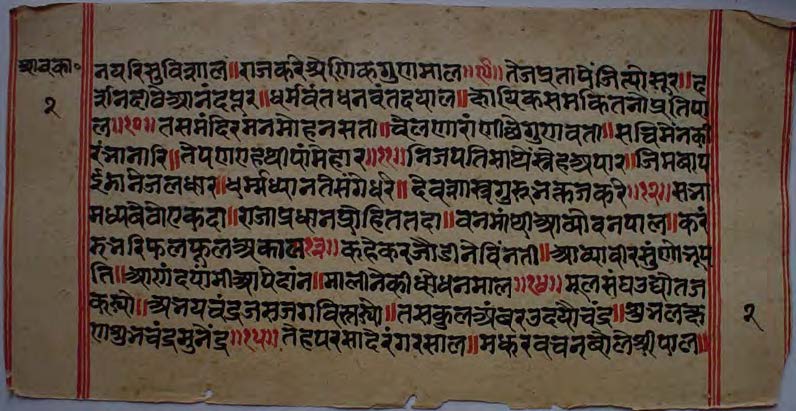 श्रावका॰
२
नयरिसुविशाल॥राजकरेश्रेणिकगुणमाल॥९॥तेजप्रतापेंजित्योसूर॥द
र्शनदावेआनंदपूर॥धर्मवंतधनवंतदयाल॥क्षायिकसमकितनोप्रतिपा
ल॥१०॥तसमंदिरमनमोहनसती॥चेलणाराणीछेगुणवती॥
रंभानारि॥११॥निजपतिसाथेंस्नेहअपार॥जिमबाप
ईआनेजलधार॥धर्मध्यानतेसंगेधरे॥देवशास्त्रगुरूनक्तजकरे॥१२॥सना
मध्यबेवोएकदा॥राजाप्रधानप्रोहिततदा॥वनमांथीआव्योवनपाल॥करं
फलफूलअकाल॥१३॥कहेकरजोडीनेविनती॥आव्यावीरसुंणोनूप
ति॥आपेदांन॥मालीनेकीधोधनमाल॥१४॥मूलसंघउद्योतज
कस्यो॥अनयचंद्रजसजगविस्तस्यो॥तसकुलअंबरउदयोचंद्र॥शुनलक्ष
णशुनचंद्रमुनेंद्र॥१५॥तेहपरसादेरंगरसाल॥मधुरवचनबोलेश्रीपाल॥
२